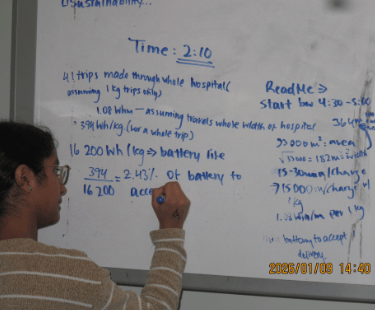 Sustainability...
Time: 2:10
41 trips made through whole hospital (
assuming 1 kg trips only)
1.08 Wh/m — assuming travels whole width of hospital
394 Wh/kg (for a whole trip)
16 200 Wh/kg => battery life
394 / 16 200 = 2.43% of battery to
acce
ReadMe =>
Start box 4:30 - 5:00
364m
33000 m² = area
= 182m = width
15-30 /charge
=> 15000 m/charge
1kg
1.08 Wh/m per 1 kg
battery to accept
delivery
2026/01/09 14:40